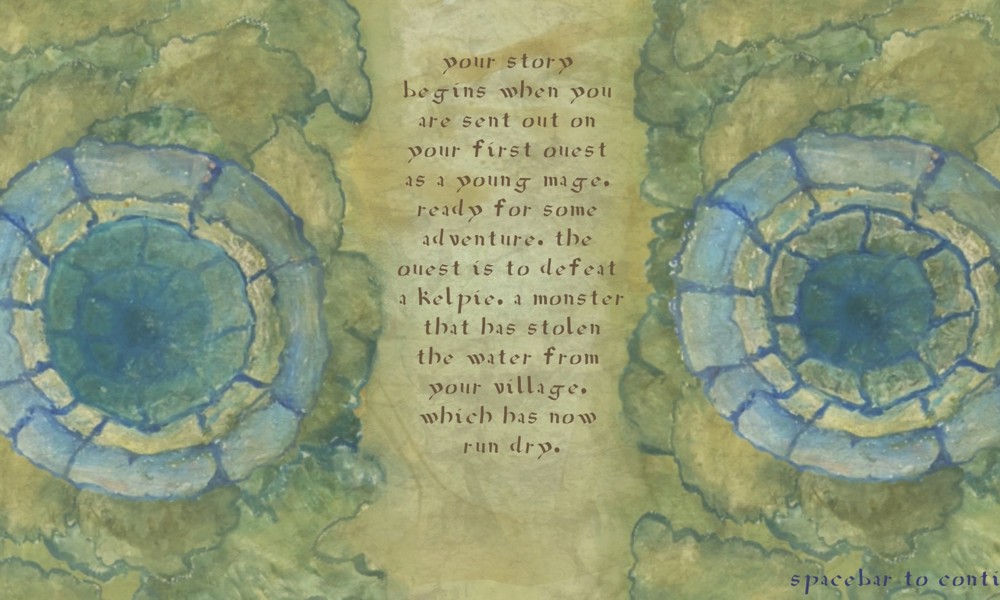 your story
begins when you
are sent out on
your first quest
as a young mage.
ready for some
adventure. the
quest is to defeat
a kelpie. a monster
that has stolen
the water from
your village.
which has now
run dry.
spacebar to conti